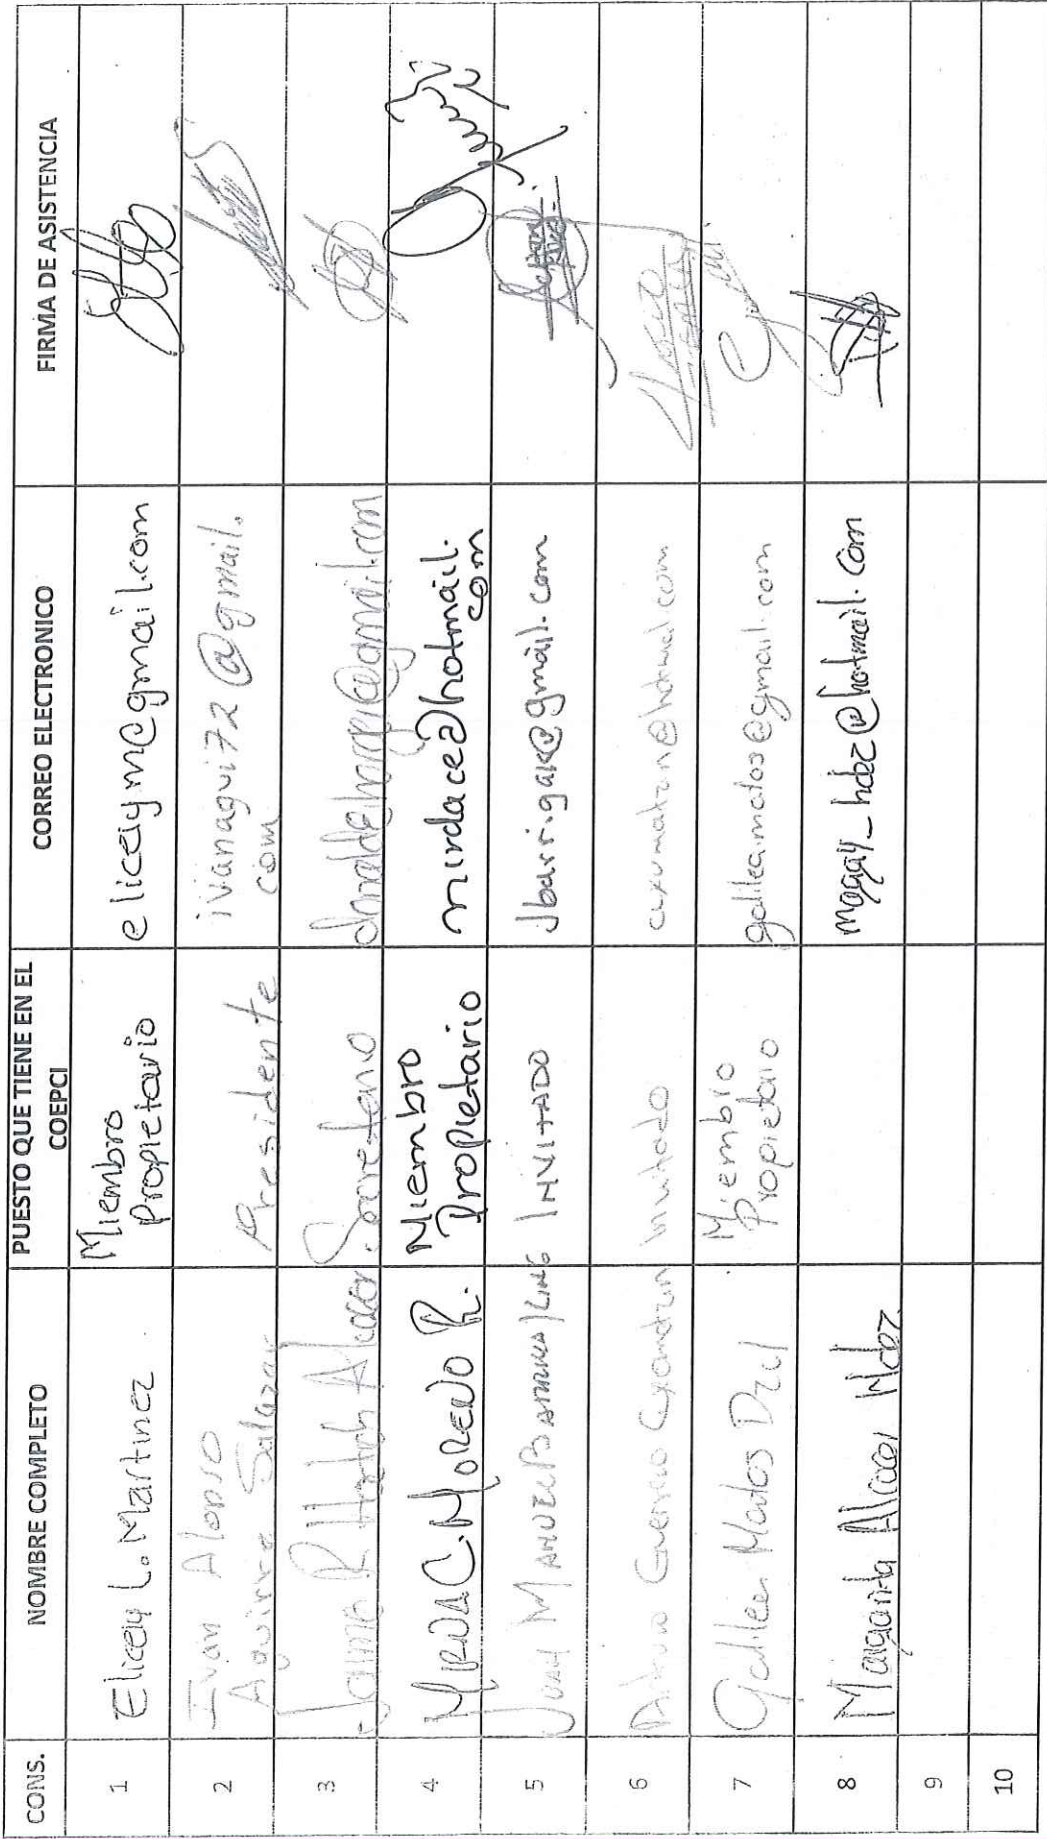 CONS. NOMBRE COMPLETO PUESTO QUE TIENE EN EL COEPCI CORREO ELECTRONICO FIRMA DE ASISTENCIA
1 Eliceiy L. Martinez Miembro Propietario eliceiym@gmail.com
2 Ivan Alonso Aguirre Salazar Presidente ivanagui72@gmail.com
3 Secretario @gmail.com
4 MIRNA C. MORENO R. Miembro Propietario mirdace@hotmail.com
5 JUAN MANUEL INVITADO Jbarrigak@gmail.com
6 Arturo Guerrero Invitado
7 Galilea Matos Dzul Miembro Propietario galilea.matos@gmail.com
8 Margarita Alcocer Hdez maggay_hdez@hotmail.com
9
10